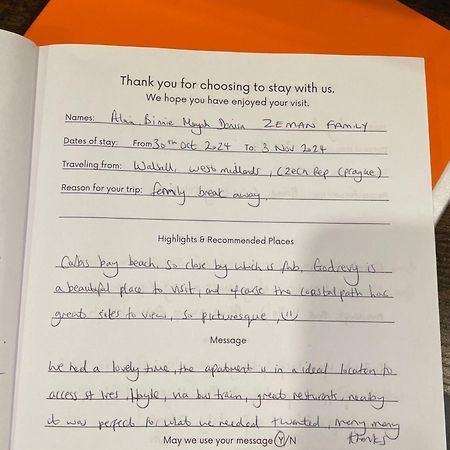 Thank you for choosing to stay with us.
We hope you have enjoyed your visit.
Names: ZEMAN FAMILY
Dates of stay: From 30th Oct 2024 To: 3 Nov 2024
Traveling from: Walsall, west midlands, (Czech Rep (Prague)
Reason for your trip: family break away.
Highlights & Recommended Places
Carbis bay beach, so close by which is fab, Godrevy is
a beautiful place to visit, and of course the coastal path has
great sites to view, so picturesque,
Message
We had a lovely time, the apartment is in a ideal location to
access St Ives, Hayle, via bus train, great resturants, nearby
it was perfect for what we needed & wanted, many many
thanks
May we use your message Y/N